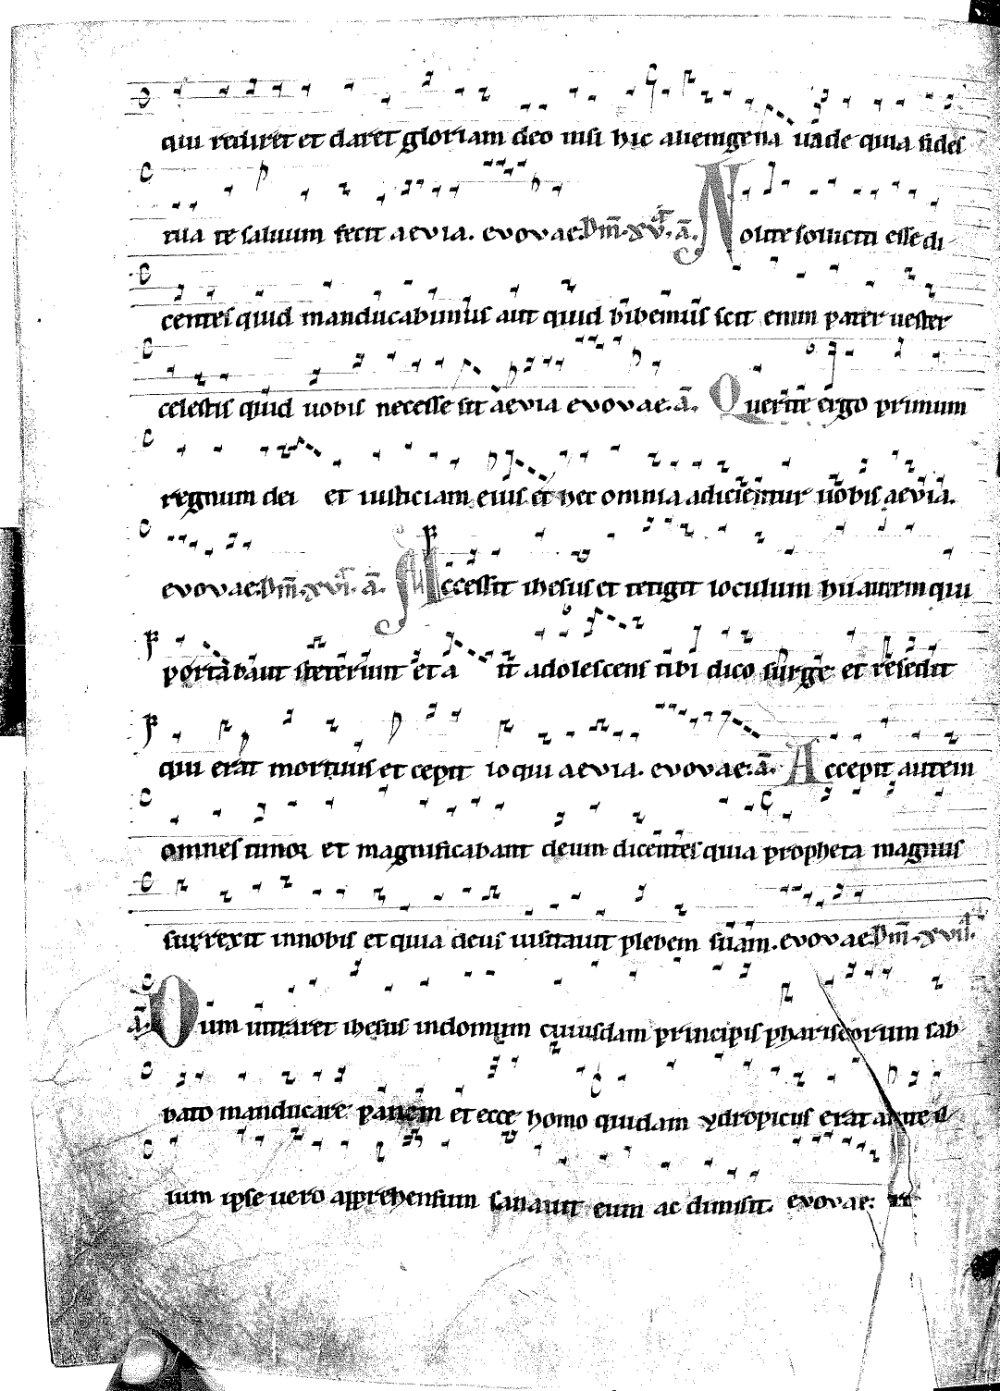 qui rediret et daret gloriam deo nisi hic alienigena uade quia fides
tua te saluum fecit aevia. evovae. Dm̄. xv. ā. Nolite solliciti esse di
centes quid manducabimus aut quid bibemus scit enim pater uester
celestis quid uobis necesse sit aevia evovae. ā. Querite ergo primum
regnum dei et iusticiam eius et hec omnia adicientur uobis aevia.
evovae. Dm̄. xvi. ā. Accessit ihesus et tetigit loculum hii autem qui
portabant steterunt et a it adolescens tibi dico surge et resedit
qui erat mortuus et cepit loqui aevia. evovae. ā. Accepit autem
omnes timor et magnificabant deum dicentes quia propheta magnus
surrexit innobis et quia deus uisitauit plebem suam. evovae. Dm̄. xvii.
ā. Dum intraret ihesus indomum cuiusdam principis phariseorum sab
bato manducare panem et ecce homo quidam ydropicus erat ante il
ium ipse uero apprehensum sanauit eum ac dimisit. evovae: